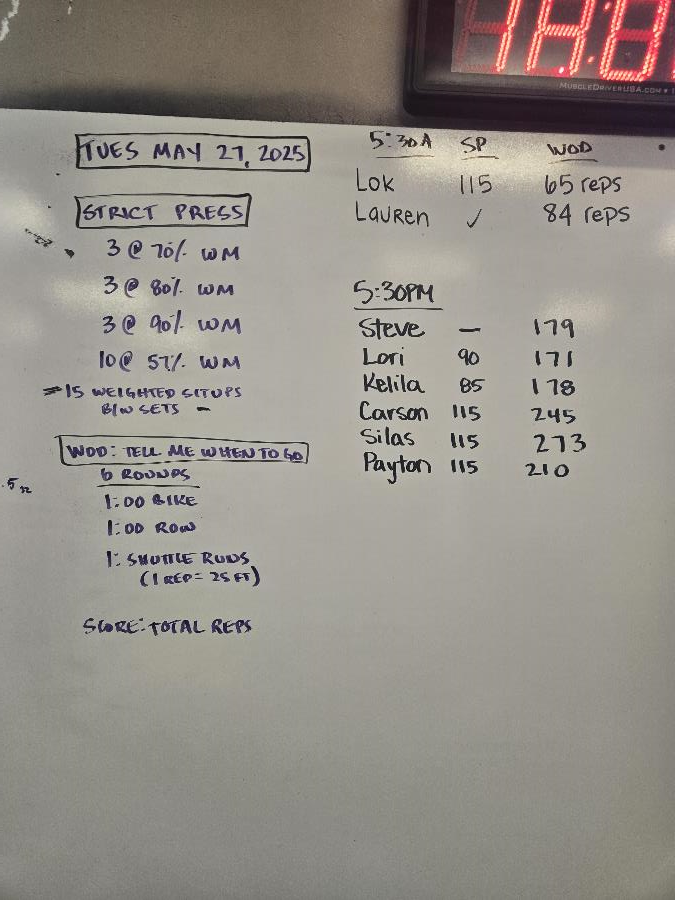 MUSCLEDRIVERUSA.COM
TUES MAY 27, 2025
STRICT PRESS
3 @ 70% WM
3 @ 80% WM
3 @ 90% WM
10 @ 57% WM
15 WEIGHTED SITUPS
B/W SETS —
WOD: TELL ME WHEN TO GO
6 ROUNDS
1:00 BIKE
1:00 ROW
1: SHUTTLE RUNS
(1 REP = 25 FT)
SCORE: TOTAL REPS
5:30A SP WOD
Lok 115 65 reps
Lauren ✓ 84 reps
5:30PM
Steve — 179
Lori 90 171
Kelila 85 178
Carson 115 245
Silas 115 273
Payton 115 210